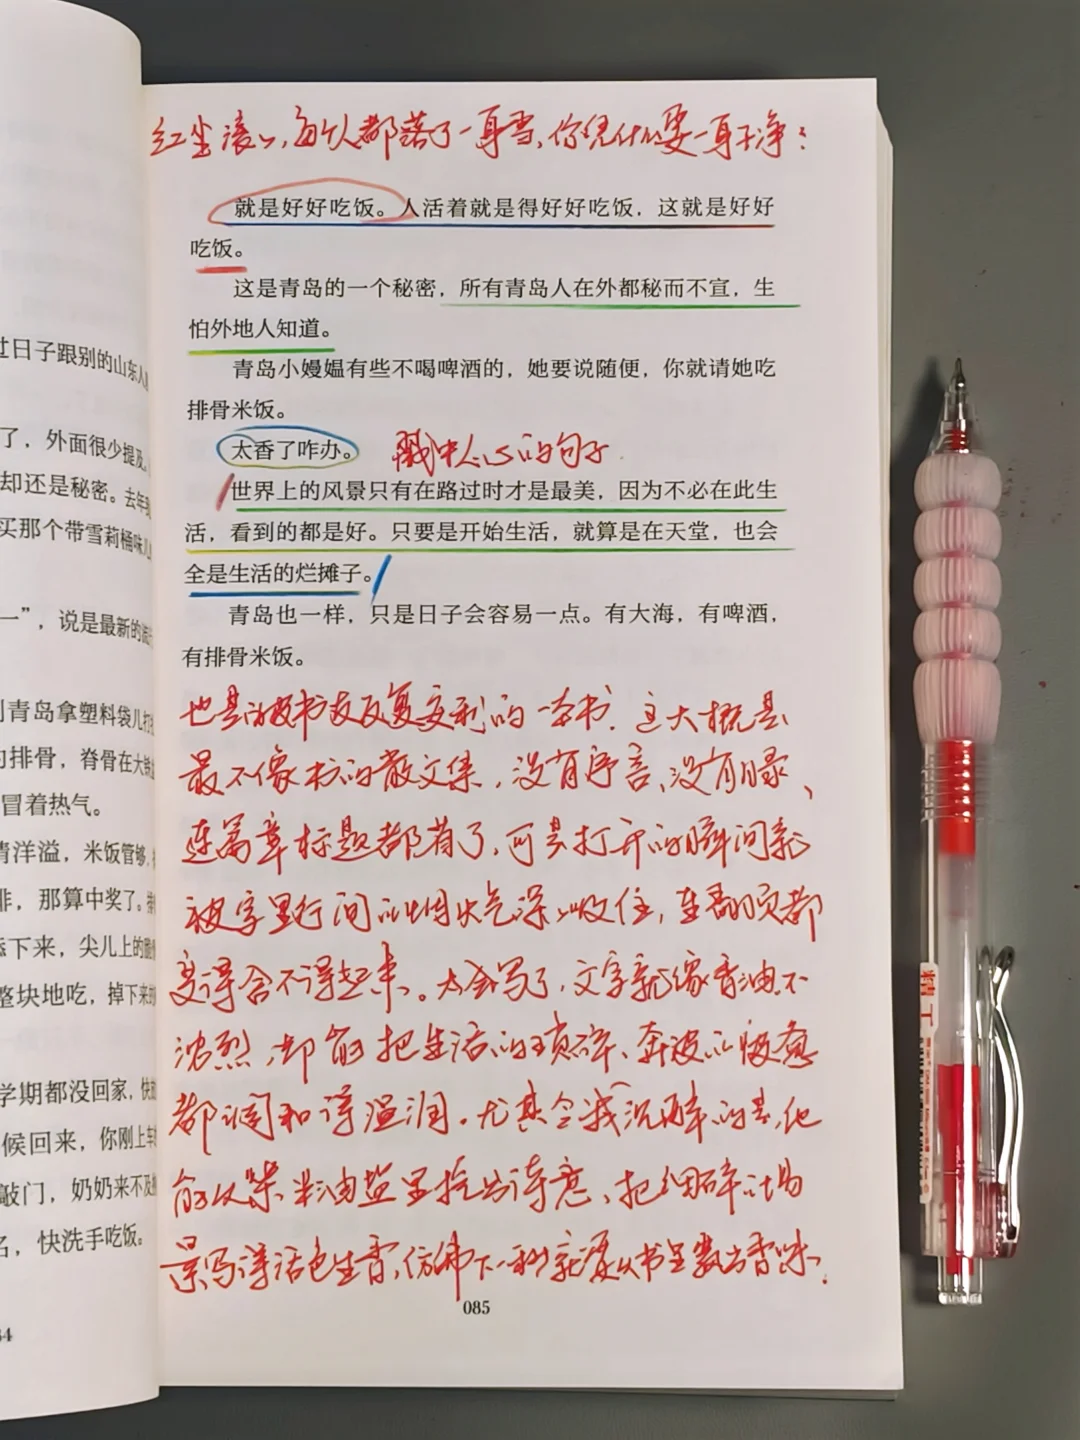 红尘滚滚，每个人都落了一身雪，你凭什么要一身干净？
就是好好吃饭。人活着就是得好好吃饭，这就是好好
吃饭。
这是青岛的一个秘密，所有青岛人在外都秘而不宣，生
怕外地人知道。
青岛小嫚媪有些不喝啤酒的，她要说随便，你就请她吃
排骨米饭。
太香了咋办。
戳中人心的句子
世界上的风景只有在路过时才是最美，因为不必在此生
活，看到的都是好。只要是开始生活，就算是在天堂，也会
全是生活的烂摊子。
青岛也一样，只是日子会容易一点。有大海，有啤酒，
有排骨米饭。
也是被书友反复安利的一本书，这大概是
最不像书的散文集，没有序言、没有目录、
连篇章标题都省了，可是打开的瞬间就
被字里行间的烟火气深深吸住，连翻页都
变得舍不得起来。太会写了，文字就像香油不
浓烈，却能把生活的琐碎、奔波的疲惫
都调和得温润。尤其令我沉醉的是，他
能从柴米油盐里捻出诗意，把细碎的场
景写得活色生香，仿佛下一秒就要从书里飘出香味。
085
过日子跟别的山东人
了，外面很少提及。
却还是秘密。去年
买那个带雪莉桶味
一”，说是最新的
到青岛拿塑料袋儿打
的排骨，脊骨在大
冒着热气。
情洋溢，米饭管够，
排，那算中奖了。
下来，尖儿上的
整块地吃，掉下来的
学期都没回家，快
候回来，你刚上车
敲门，奶奶来不及
名，快洗手吃饭。
精工